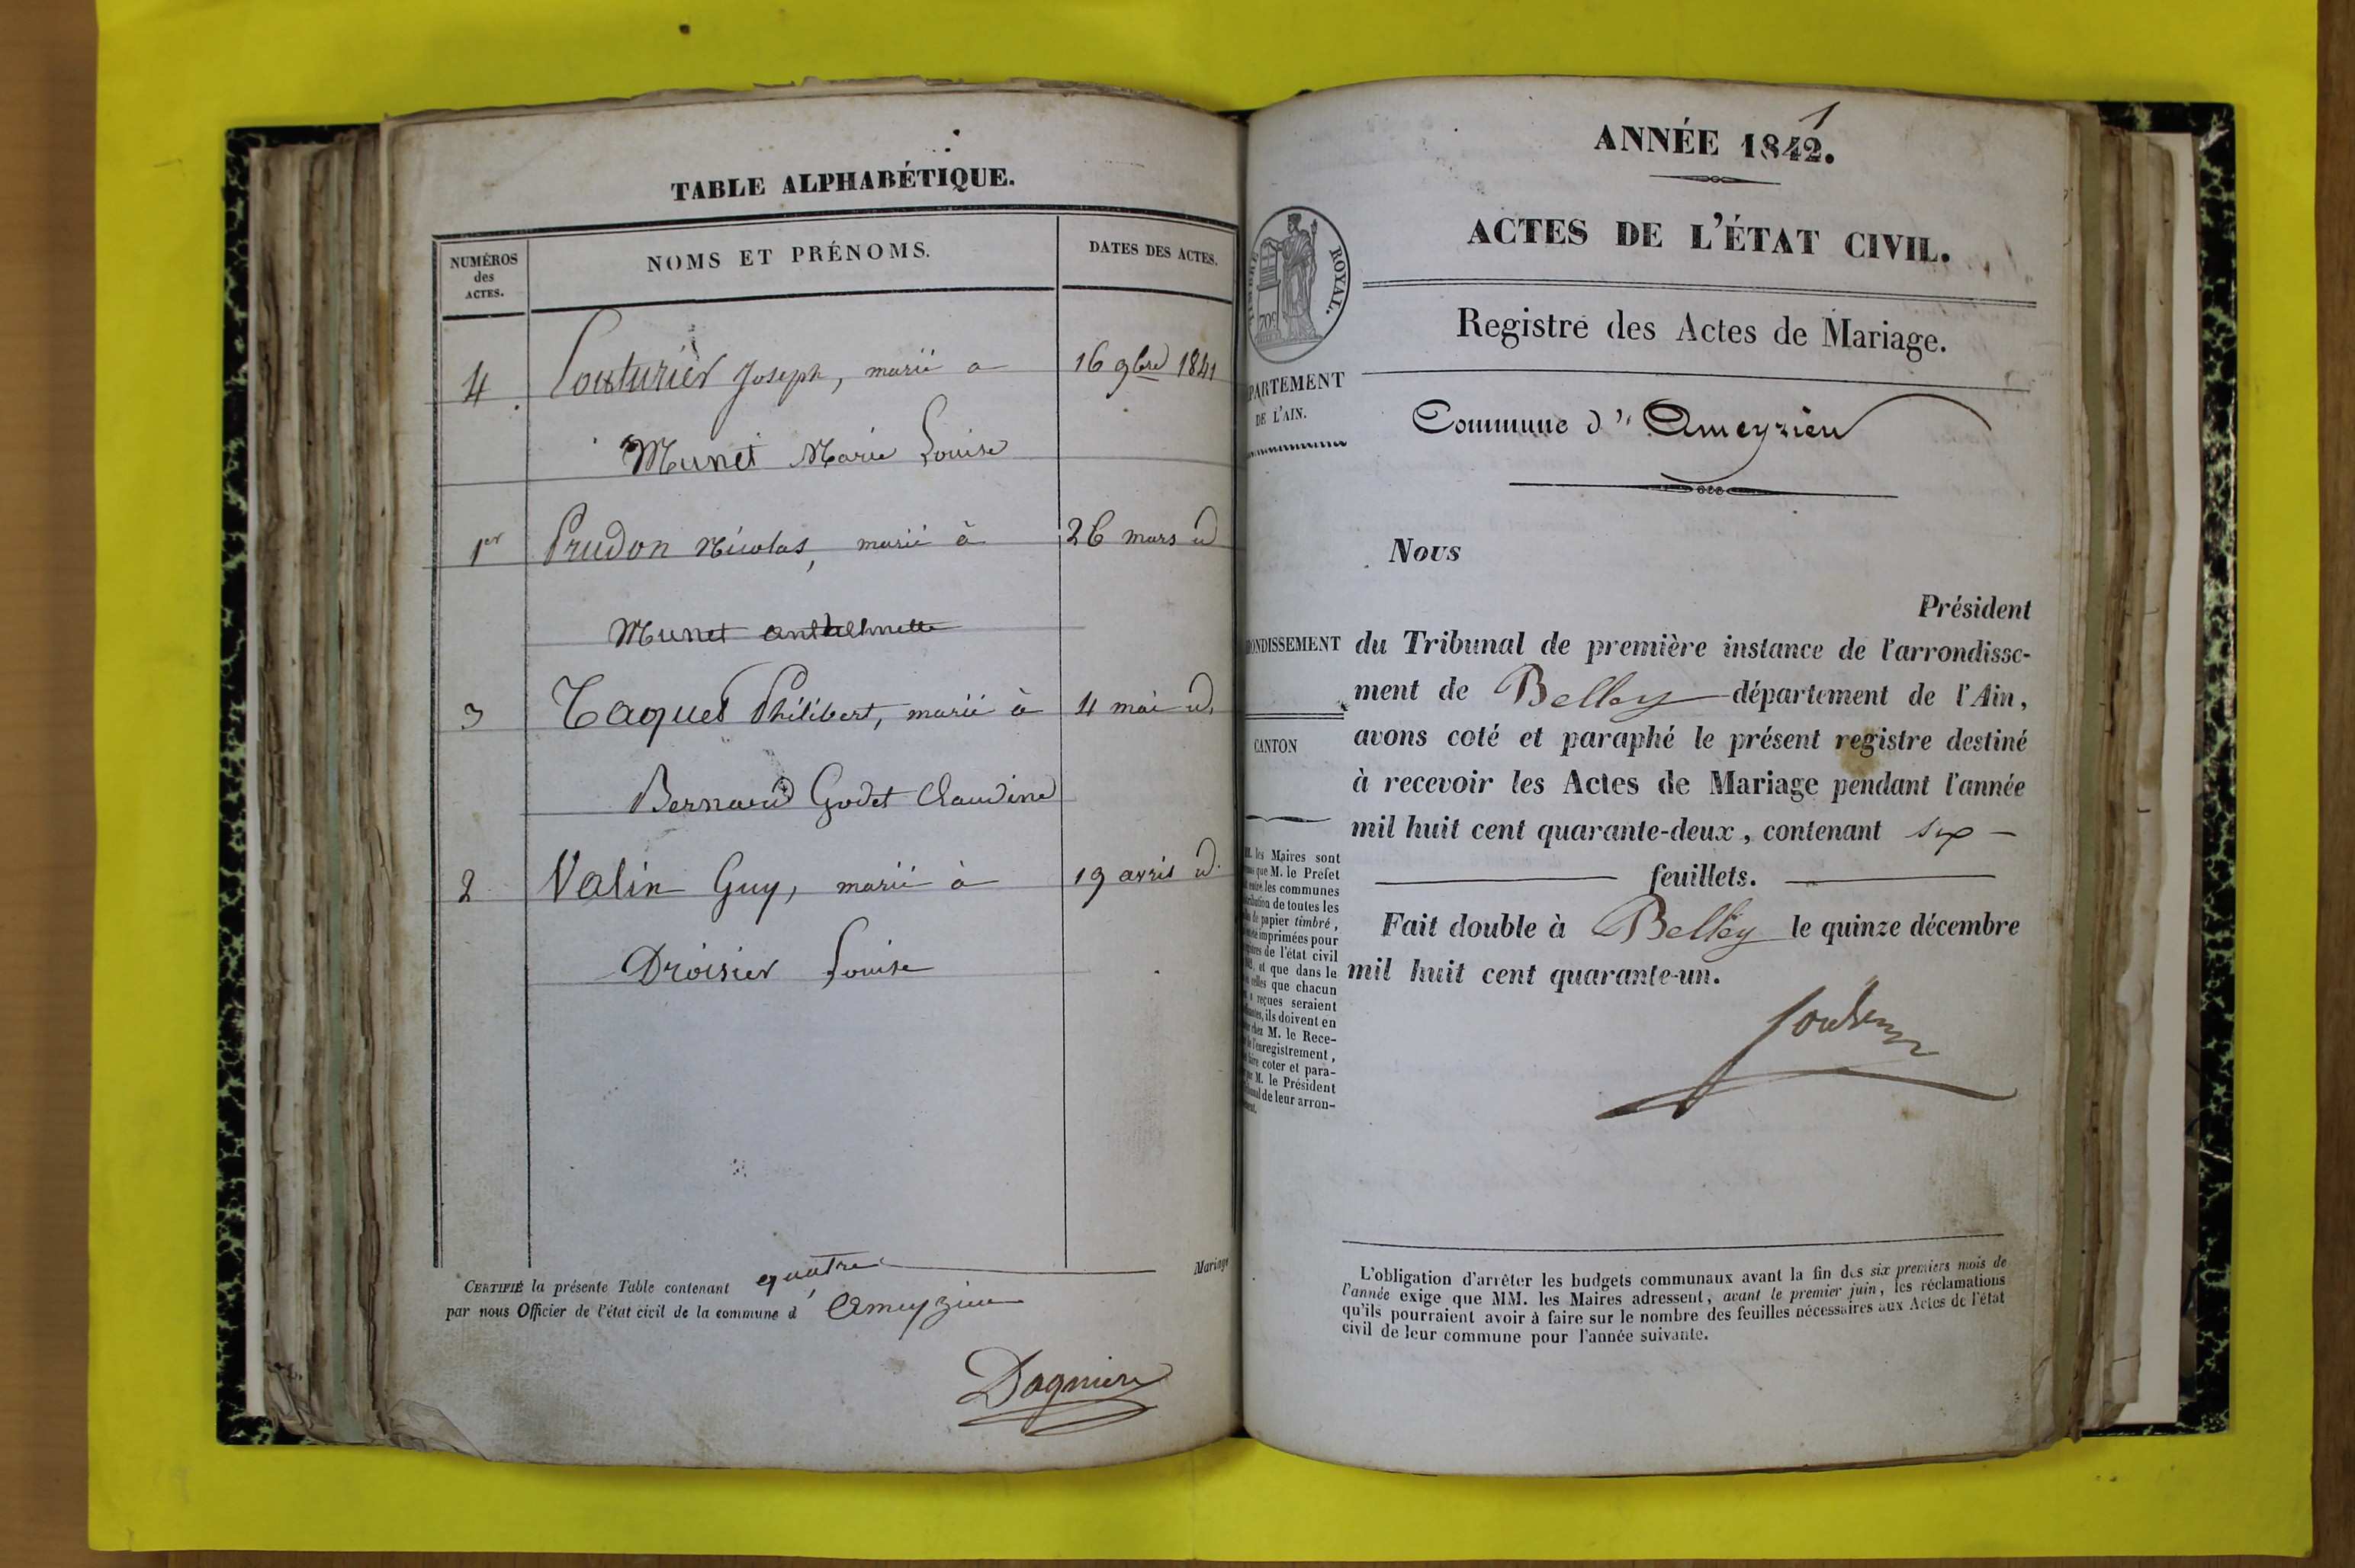 TABLE ALPHABÉTIQUE.
NUMÉROS
des
ACTES.
NOMS ET PRÉNOMS.
DATES DES ACTES.
4 Couturier Joseph, marié a 16 9bre 1841
Munet Marie Louise
1er Prudon Nicolas, marié à 26 mars id
Munet anthelmette
3 Taquet Philibert, marié à 4 mai id.
Bernard Godet Claudine
2 Valin Guy, marié à 19 avril id.
Droisier Louise
CERTIFIÉ la présente Table contenant quatre Mariage
par nous Officier de l'état civil de la commune d' Ameyzieu
Dagnieu
1
ANNÉE 1842.
ACTES DE L'ÉTAT CIVIL.
TIMBRE ROYAL.
70c
Registre des Actes de Mariage.
PARTEMENT
DE L'AIN.
Commune d'Ameyzieu
Nous
Président
ONDISSEMENT
du Tribunal de première instance de l'arrondisse-
ment de Belley département de l'Ain,
CANTON
avons coté et paraphé le présent registre destiné
à recevoir les Actes de Mariage pendant l'année
mil huit cent quarante-deux, contenant six
feuillets.
Fait double à Belley le quinze décembre
mil huit cent quarante-un.
MM. les Maires sont
que M. le Préfet
les communes
de toutes les
de papier timbré,
imprimées pour
de l'état civil
et que dans le
que chacun
reçues seraient
ils doivent en
chez M. le Rece-
l'enregistrement,
faire coter et para-
M. le Président
de leur arron-
L'obligation d'arrêter les budgets communaux avant la fin des six premiers mois de
l'année exige que MM. les Maires adressent, avant le premier juin, les réclamations
qu'ils pourraient avoir à faire sur le nombre des feuilles nécessaires aux Actes de l'état
civil de leur commune pour l'année suivante.